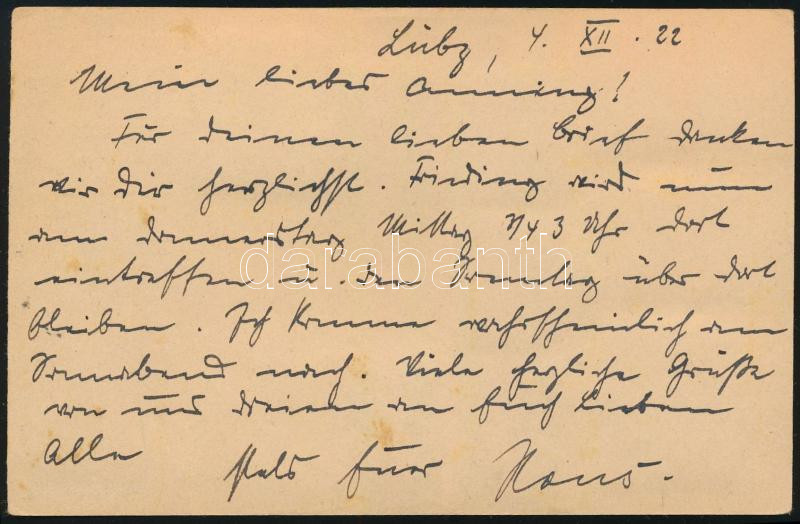 Lübz, 4. XII. 22
Mein liebes Anning!
Für deinen lieben Brief danken
wir Dir herzlichst. Frieding wird nun
am Donnerstag Mittag 3/4 3 Uhr dort
eintreffen u. den Sonntag über dort
bleiben. Ich komme wahrscheinlich am
Sonnabend nach. Viele herzliche Grüße
von uns dreien an Euch lieben
Alle
stets Euer Hans.
darabanth